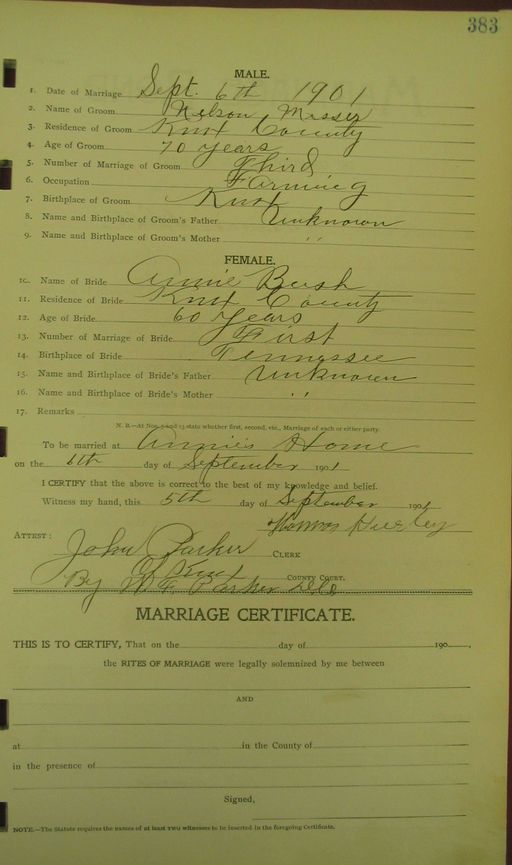 383
MALE.
1. Date of Marriage Sept. 6th 1901
2. Name of Groom Nelson Messer
3. Residence of Groom Knox County
4. Age of Groom 70 years
5. Number of Marriage of Groom Third
6. Occupation Farming
7. Birthplace of Groom Knox
8. Name and Birthplace of Groom's Father Unknown
9. Name and Birthplace of Groom's Mother ,,
FEMALE.
10. Name of Bride Annie Bush
11. Residence of Bride Knox County
12. Age of Bride 60 Years
13. Number of Marriage of Bride First
14. Birthplace of Bride Tennessee
15. Name and Birthplace of Bride's Father Unknown
16. Name and Birthplace of Bride's Mother ,,
17. Remarks
N. B.—At Nos. 5 and 13 state whether first, second, etc., Marriage of each or either party.
To be married at Annie's Home
on the 6th day of September 1901
I CERTIFY that the above is correct to the best of my knowledge and belief.
Witness my hand, this 5th day of September 1901
Thomas Hurley
ATTEST:
John Parker CLERK
Of Knox COUNTY COURT.
By W. F. Parker D.C.
MARRIAGE CERTIFICATE.
THIS IS TO CERTIFY, That on the day of 190 ,
the RITES OF MARRIAGE were legally solemnized by me between
AND
at in the County of
in the presence of
Signed,
NOTE.—The Statute requires the names of at least TWO witnesses to be inserted in the foregoing Certificate.